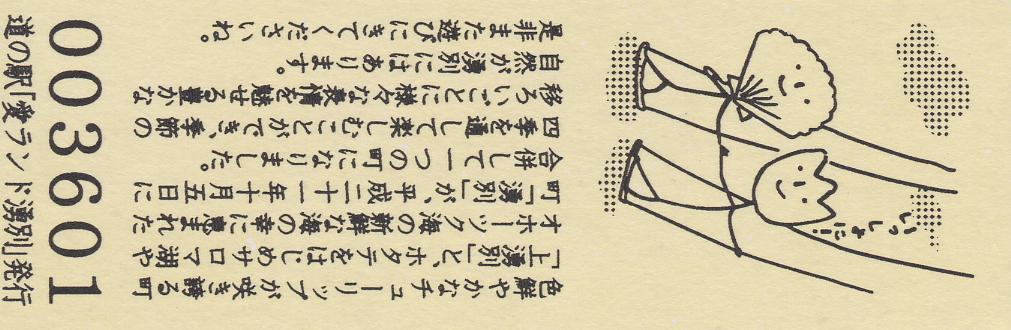 いっしょに!!
色鮮やかなチューリップが咲き誇る町
「上湧別」と、ホタテをはじめサロマ湖や
オホーツク海の新鮮な海の幸に恵まれた
町「湧別」が、平成二十一年十月五日に
合併して一つの町になりました。
四季を通して楽しむことができ、季節の
移ろいごとに様々な表情を魅せる豊かな
自然が湧別にはあります。
是非また遊びにきてくださいね。
003601
道の駅「愛ランド湧別」発行